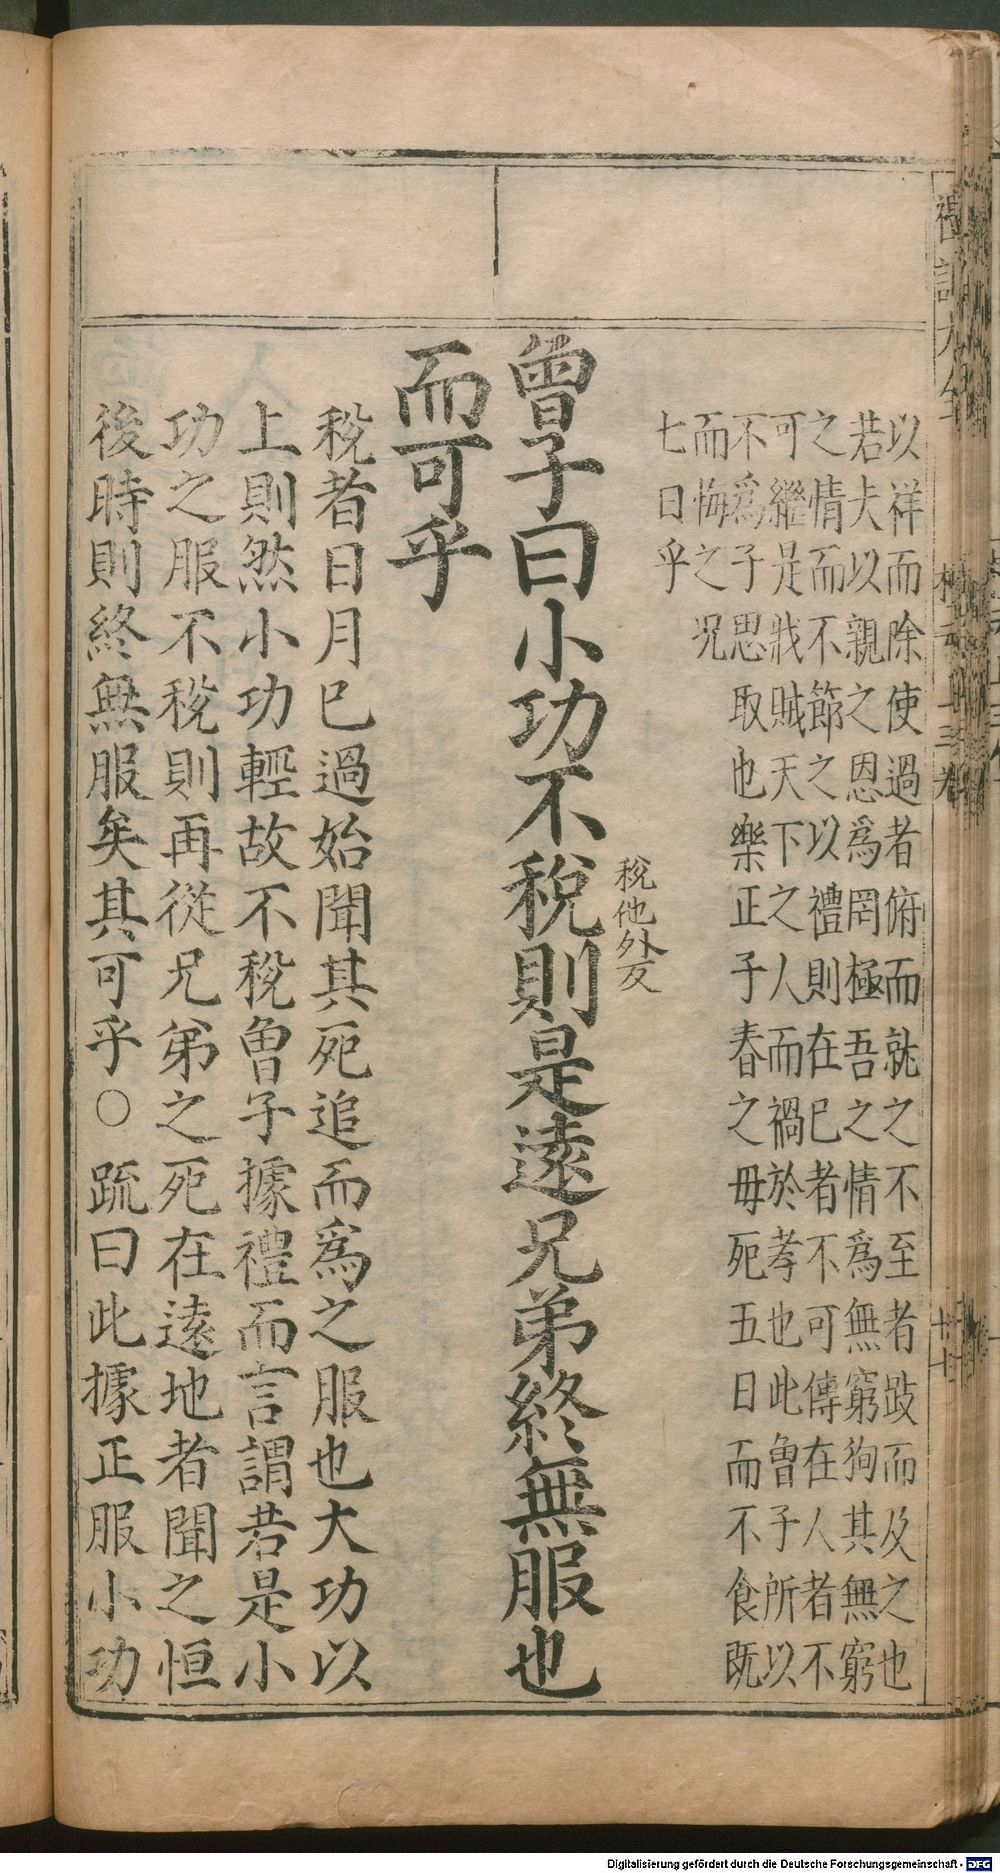 以祥而除使過者俯而就之不至者跂而及之也
若夫以親之恩爲罔極吾之情爲無窮狥其無窮
之情而不節之以禮則在已者不可傳在人者不
可繼是戕賊天下之人而禍於孝也此曾子所以
不爲子思取也樂正子春之毋死五日而不食旣
而悔之况
七日乎
稅他外反
曾子曰小功不稅則是逺兄弟終無服也
而可乎
稅者日月已過始聞其死追而爲之服也大功以
上則然小功輕故不稅曾子據禮而言謂若是小
功之服不稅則再從兄弟之死在逺地者聞之恒
後時則終無服矣其可乎○疏曰此據正服小功
Digitalisierung gefördert durch die Deutsche Forschungsgemeinschaft - DFG